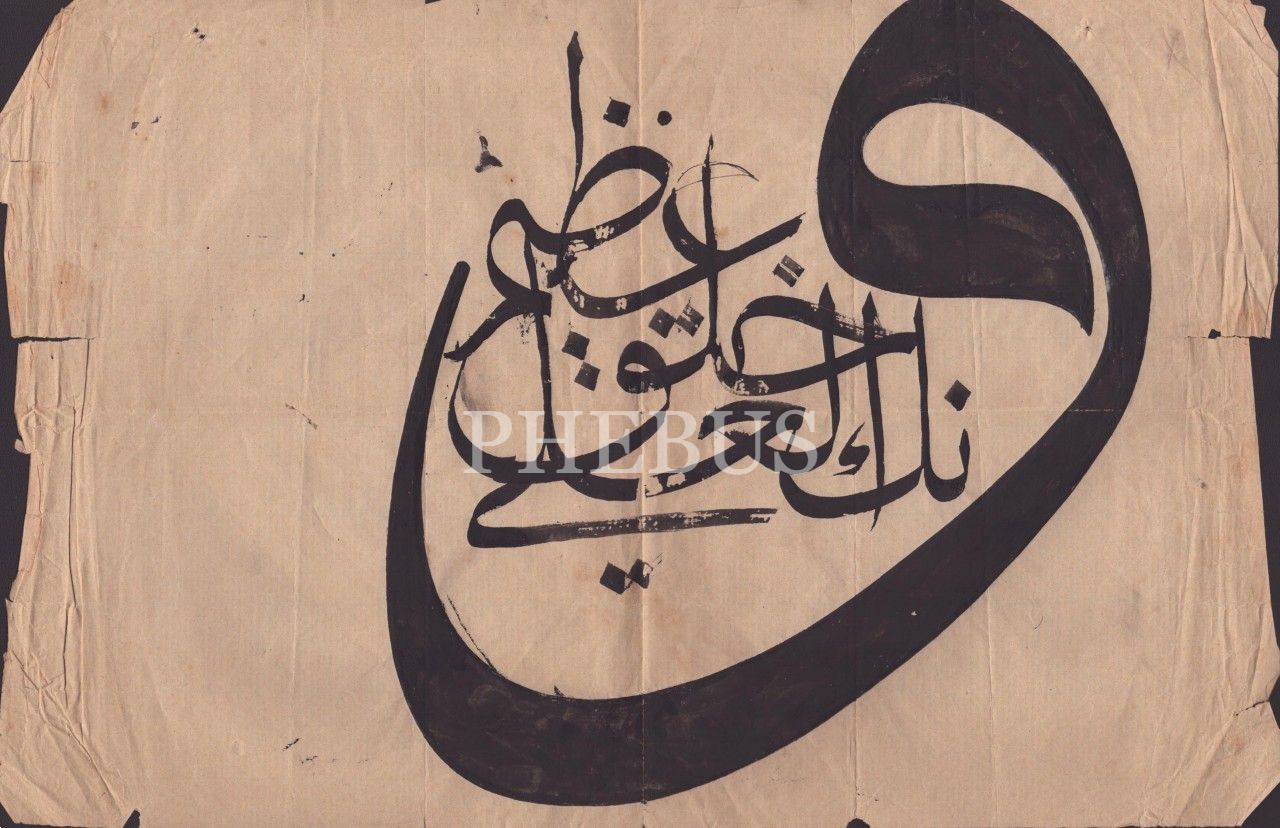 وإنك لعلى خلق عظيم
PHEBUS